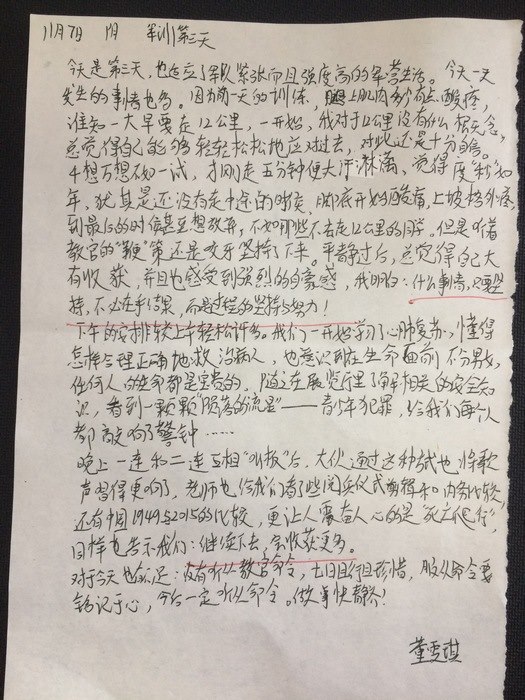 11月7日 阴 军训第三天
今天是第三天,也适应了军队紧张而且强度高的军营生活。今天一天
发生的事情也多。因为前一天的训练,腿上肌肉多多有点酸疼,
谁知一大早要走12公里,一开始,我对于12公里没有什么概念,
总觉得自己能够轻轻松松地应对过去,对此还是十分自信。
千想万想不如一试,才刚走五分钟便大汗淋漓,觉得度"秒"如
年,尤其是还没有走中途的时候,脚底开始酸痛,上坡格外疼,
到最后的时候甚至想放弃,不如那些不去走12公里的同学。但是听着
教官的"鞭"策还是咬牙坚持了下来。平静过后,总觉得自己大
有收获,并且也感受到强烈的自豪感,我明白:什么事情,只要坚
持,不必在乎结果,而是过程的坚持与努力!
下午的安排较上午轻松许多。我们一开始学习了心肺复苏,懂得
怎样合理正确地救治病人,也意识到在生命面前不分男女,
任何人的生命都是宝贵的。随之在展览厅里了解相关的安全知
识,看到一颗颗"陨落的流星"——青少年犯罪,给我们每个人
都敲响了警钟……
晚上一连和二连互相"叫板"后,大伙通过这种方式也将歌
声唱得更响了,老师也给我们看了些阅兵仪式剪辑和内务比较
还有中国1949与2015的比较,更让人震奋人心的是"死亡爬行",
同样也告示我们:继续下去,会收获更多。
对于今天也不足:没有听从教官命令,七日且行且珍惜,服从命令要
铭记于心,今后一定听从命令。做事快静齐!
董雯琪